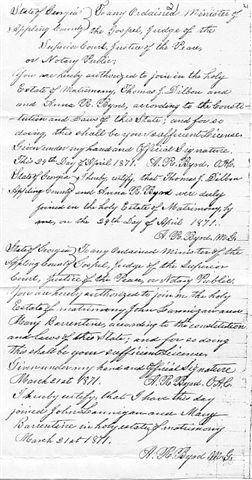 State of Georgia To any Ordained Minister of
Appling County the Gospel, Judge of the
Superior Court, Justice of the Peace,
or Notary Public;
You are hereby authorized to join in the holy
Estate of Matrimony, Thomas J. Dillon and
and Anna R. Byrd, according to the Consti-
tution and Laws of this State; and for so
doing, this shall be your sufficient License
Given under my hand and Official Signature.
This 29th Day of April 1871. A. R. Byrd,
State of Georgia I hereby certify, that Thomas J. Dillon
Appling County and Anna R. Byrd were duly
joined in the holy Estate of Matrimony by
me, on the 29th Day of April 1871.
A. R. Byrd M.G.
State of Georgia To any Ordained Minister of the
Appling County Gospel, Judge of the Superior
Court, Justice of the Peace, or Notary Public,
You are hereby authorized to join in the holy
Estate of matrimony John Lannigan and
Mary Barentine, according to the constitution
and laws of this State, and for so doing
this shall be your sufficient License
Given under my hand and official Signature
March 21st 1871. A. R. Byrd.
I hereby certify, that I have this day
joined John Lannigan and Mary
Barentine in holy estate of matrimony
March 21st 1871.
A. R. Byrd M.G.